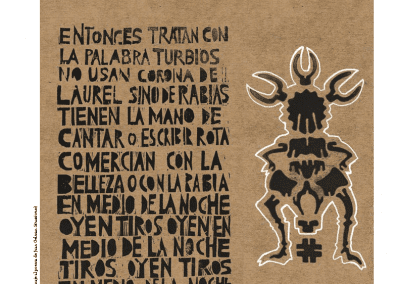 ENTONCES TRATAN CON
LA PALABRA TURBIOS
NO USAN CORONA DE
LAUREL SINO DE RABIAS
TIENEN LA MANO DE
CANTAR O ESCRIBIR ROTA
COMERCIAN CON LA
BELLEZA O CON LA RABIA
EN MEDIO DE LA NOCHE
OYEN TIROS OYEN EN
MEDIO DE LA NOCHE
TIROS OYEN TIROS
EN MEDIO DE LA NOCHE